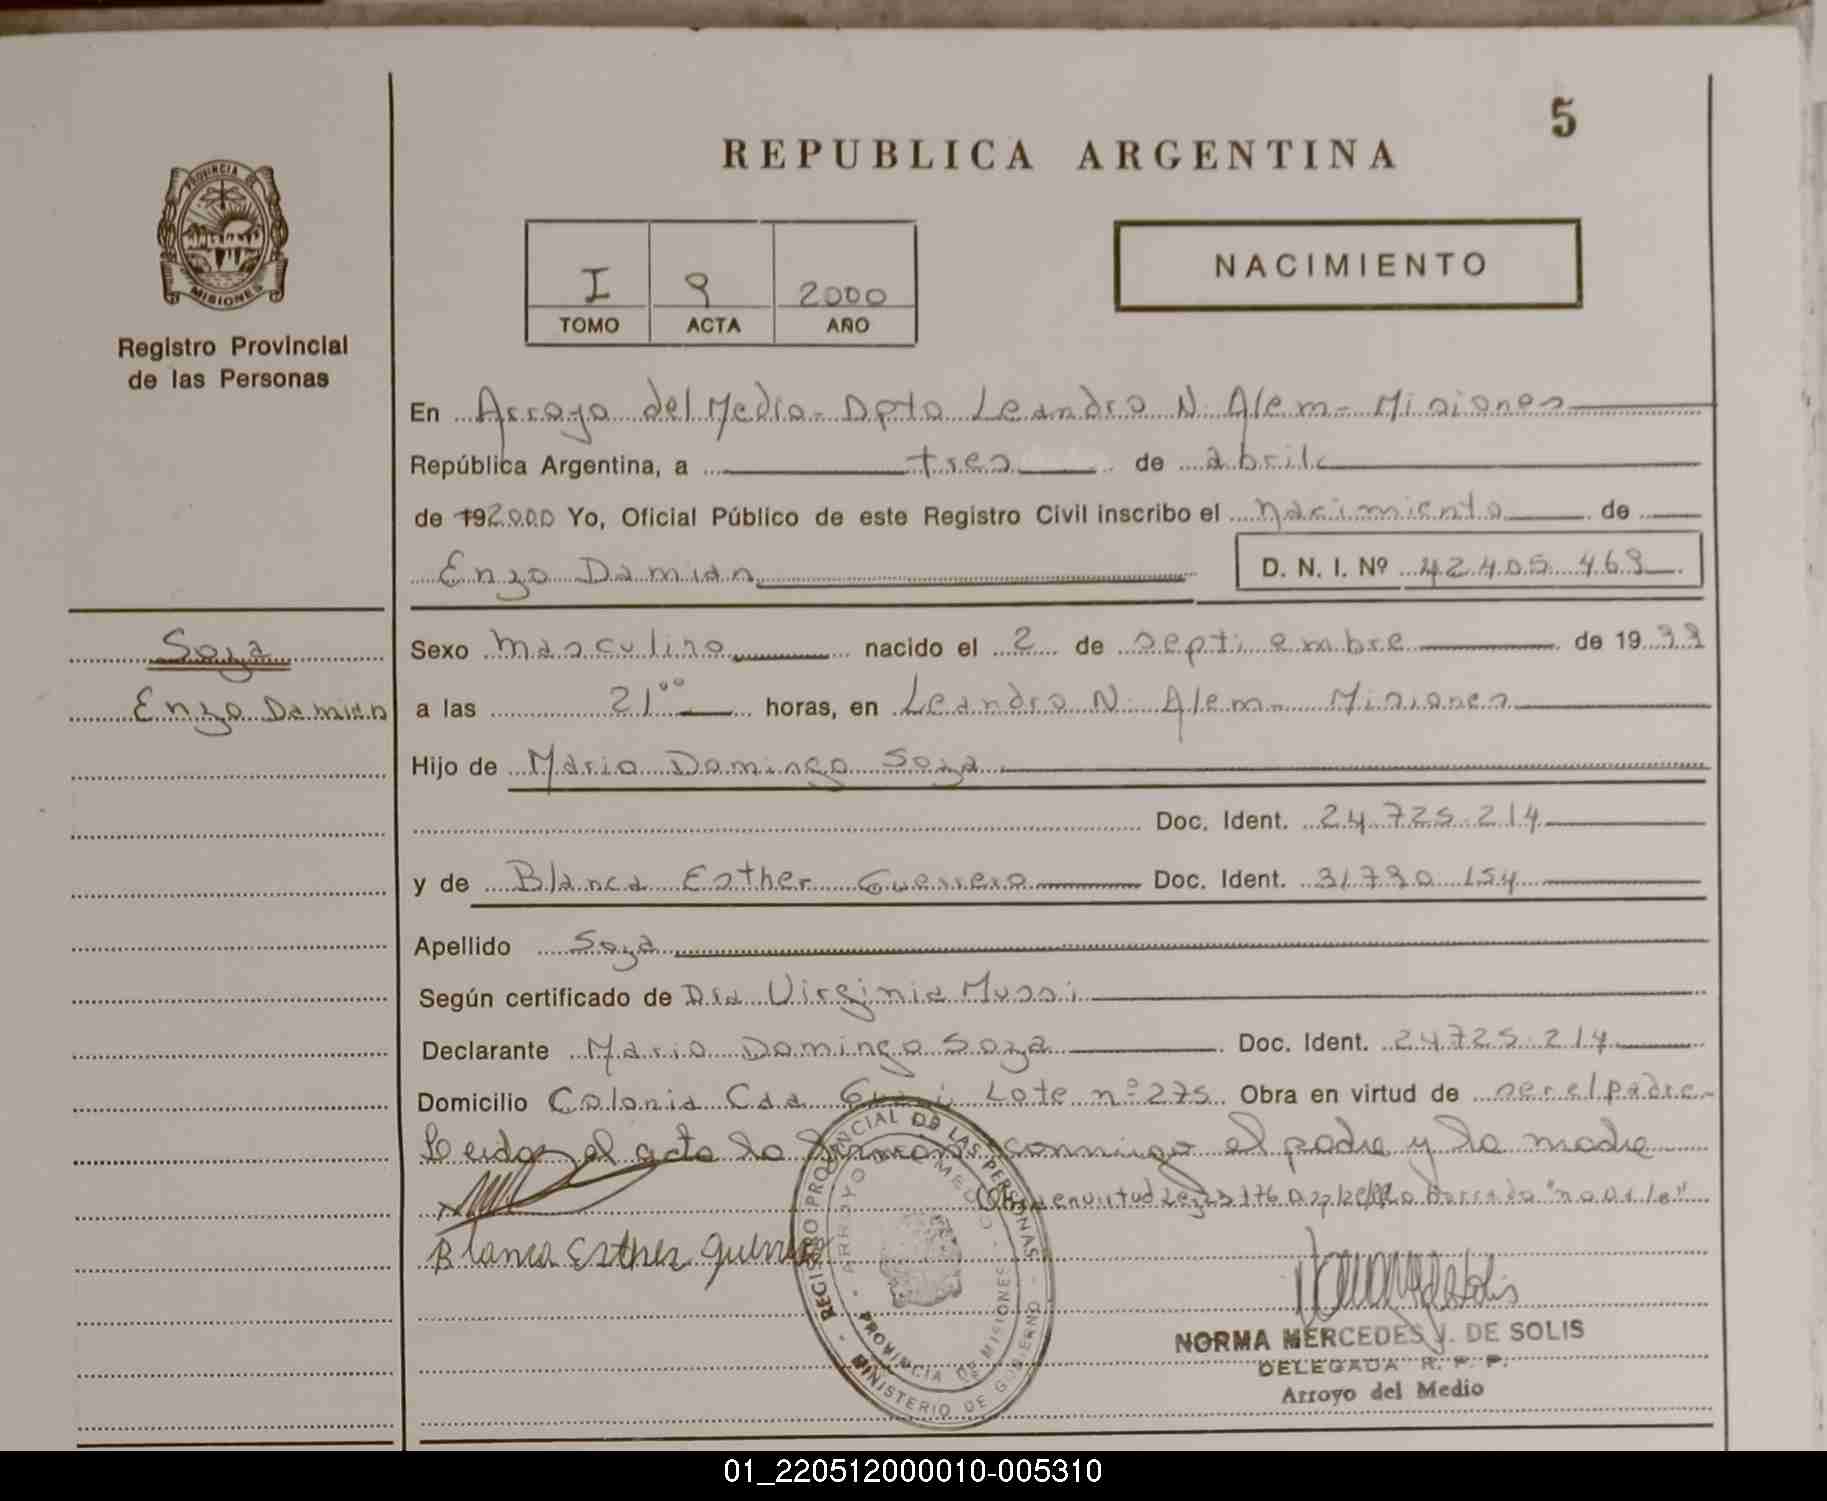 5
REPUBLICA ARGENTINA
PROVINCIA DE
MISIONES
Registro Provincial
de las Personas
I 9 2000
TOMO ACTA AÑO
NACIMIENTO
En Arroyo del Medio - Dpto Leandro N. Alem - Misiones
República Argentina, a tres de abril
de 192000 Yo, Oficial Público de este Registro Civil inscribo el nacimiento de
Enzo Damian D. N. I. Nº 42.405.469
Soza
Enzo Damian
Sexo masculino nacido el 2 de septiembre de 1999
a las 21°° horas, en Leandro N. Alem - Misiones
Hijo de Mario Domingo Soza
Doc. Ident. 24.725.214
y de Blanca Esther Guerrero Doc. Ident. 31.790.154
Apellido Soza
Según certificado de Dra Virginia Mussi
Declarante Mario Domingo Soza Doc. Ident. 24.725.214
Domicilio Colonia Caa Lote nº 275 Obra en virtud de ser el padre
Leida el acta la firman conmigo el padre y la madre
en virtud Ley 23776 Borrado "no vale"
Blanca Esther Guerrero
REGISTRO PROVINCIAL DE LAS PERSONAS
ARROYO DEL MEDIO
PROVINCIA DE MISIONES
MINISTERIO DE GOBIERNO
NORMA MERCEDES V. DE SOLIS
DELEGADA R. P. P.
Arroyo del Medio
01_220512000010-005310